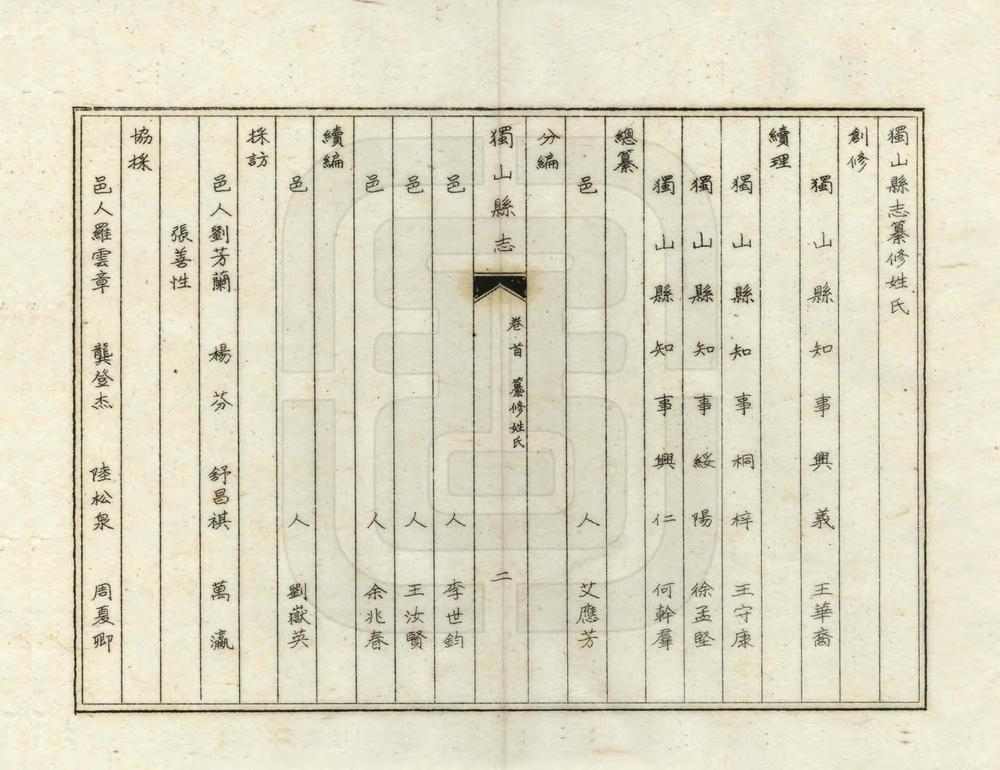 獨山縣志纂修姓氏
創修
獨山縣知事興義王華裔
續理
獨山縣知事桐梓王守康
獨山縣知事綏陽徐孟堅
獨山縣知事興仁何幹羣
總纂
邑人艾應芳
分編
獨山縣志 卷首 纂修姓氏 二
邑人李世鈞
邑人王汝賢
邑人余兆春
續編
邑人劉嶽英
採訪
邑人劉芳蘭 楊芬 舒昌祺 萬瀛
張善性
協採
邑人羅雲章 龔登杰 陸松泉 周夏卿